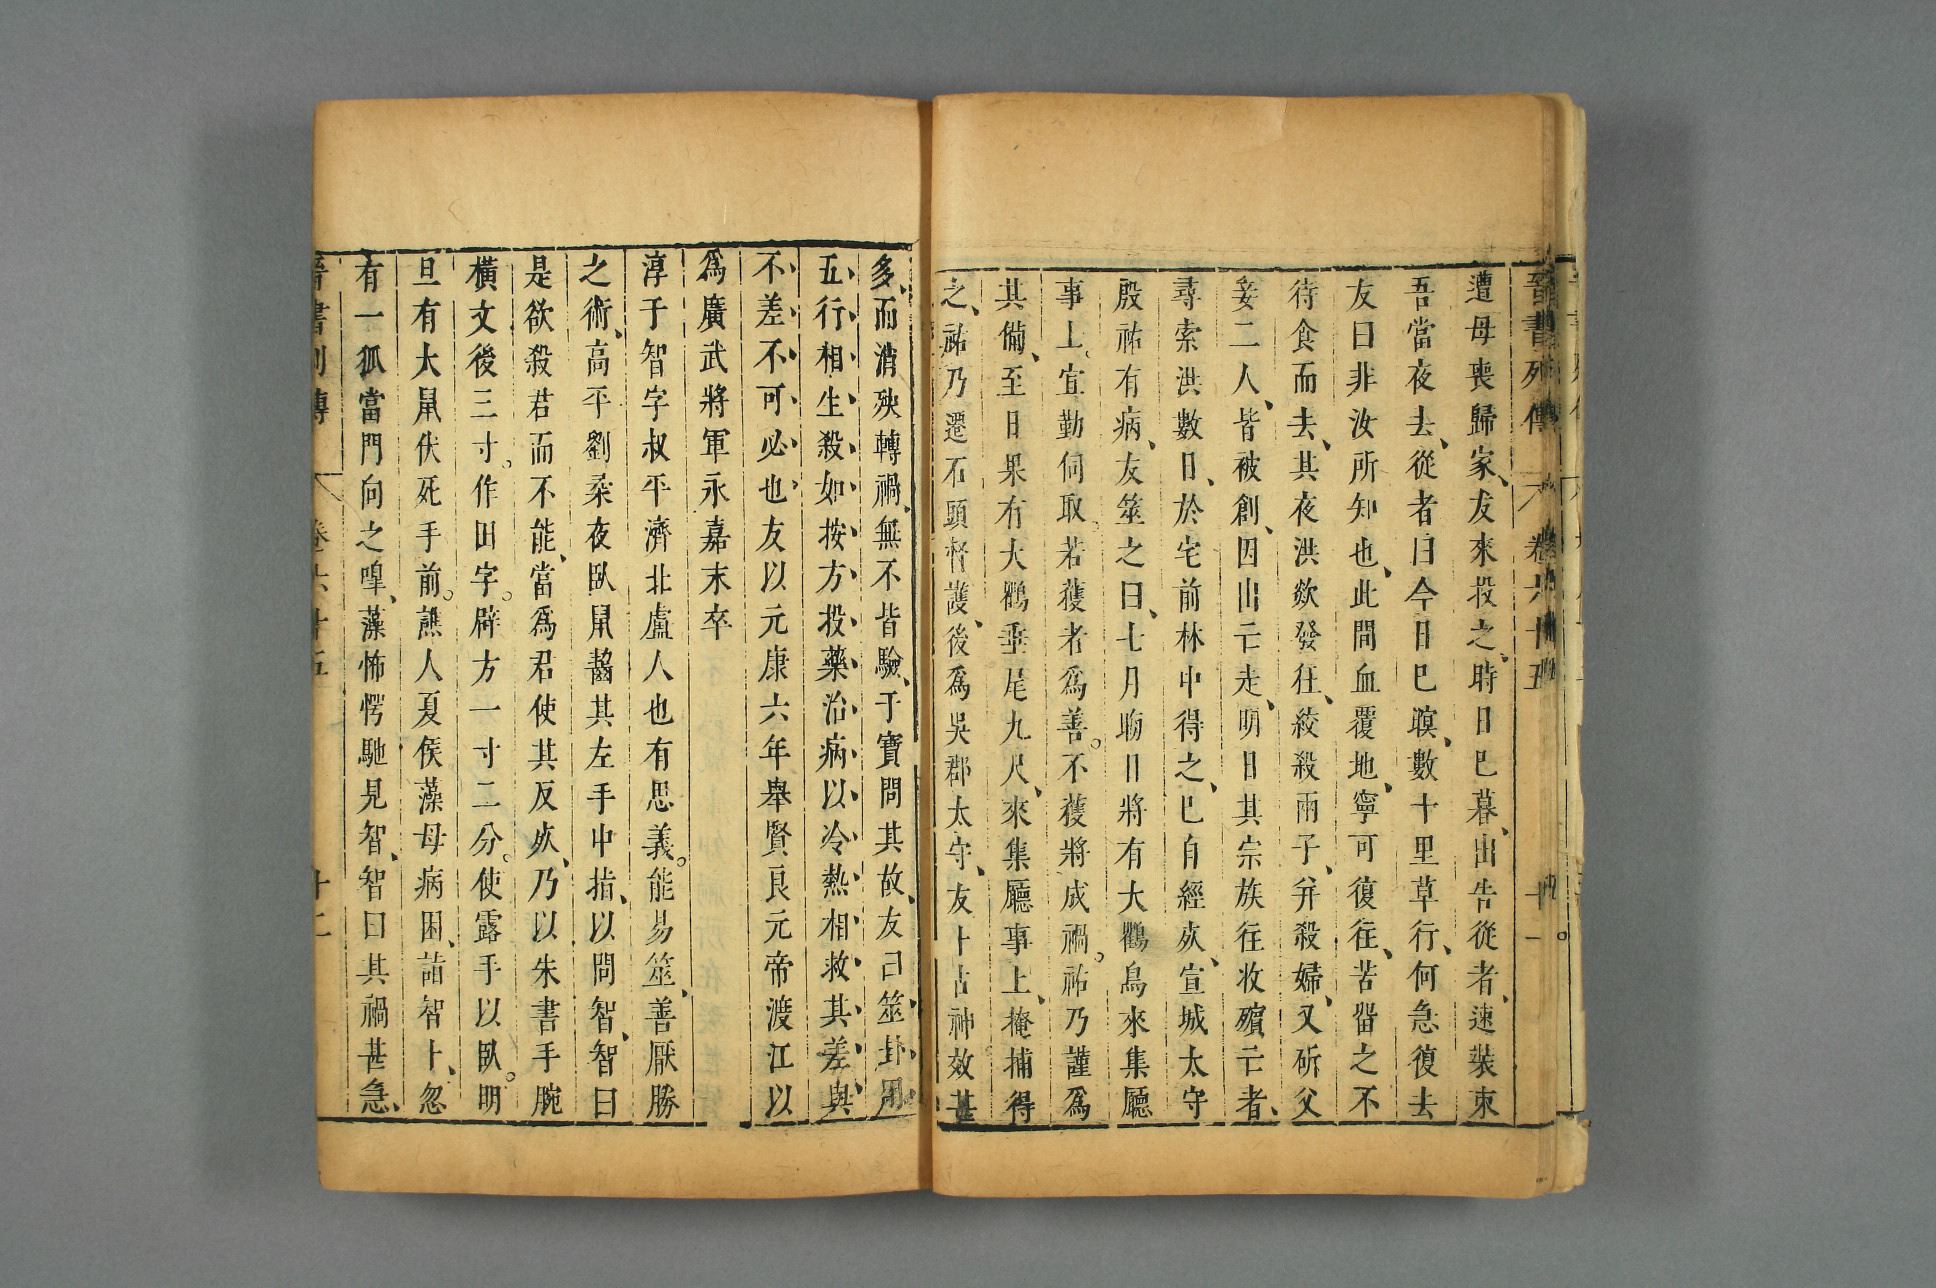 晉書列傳 卷六十五 十一
遭母喪歸家、友來投之、時日已暮、出告從者、速裝束
吾當夜去、從者曰今日已暝、數十里草行、何急復去
友曰非汝所知也、此間血覆地、寧可復往、苦畱之不
待食而去、其夜洪欻發狂、絞殺兩子、弁殺婦、又斫父
妾二人、皆被創、因出亡走、明日其宗族往收殯亡者、
尋索洪數日、於宅前林中得之、已自經死、宣城太守
殷祐有病、友筮之曰、七月晦日將有大鸛鳥來集廳
事上、宜勤伺取、若獲者爲善。不獲將成禍。祐乃謹爲
其備、至日果有大鸛垂尾九尺、來集廳事上、掩捕得
之、祐乃遷石頭督護、後爲吳郡太守、友卜占神效甚
多、而消殃轉禍、無不皆驗、于寶問其故、友曰筮卦用
五行相生殺如按方投藥治病以冷熱相救其差與
不差不可必也友以元康六年舉賢良元帝渡江以
爲廣武將軍永嘉末卒
淳于智字叔平濟北盧人也有思義。能易筮、善厭勝
之術、高平劉柔夜臥鼠齧其左手中指、以問智、智曰
是欲殺君而不能、當爲君使其反死、乃以朱書手腕
橫文後三寸。作田字。辟方一寸二分。使露手以臥。明
旦有大鼠伏死手前。譙人夏侯藻母病困、詣智卜、忽
有一狐當門向之嘷、藻怖愕馳見智、智曰其禍甚急、
晉書列傳 卷六十五 十二